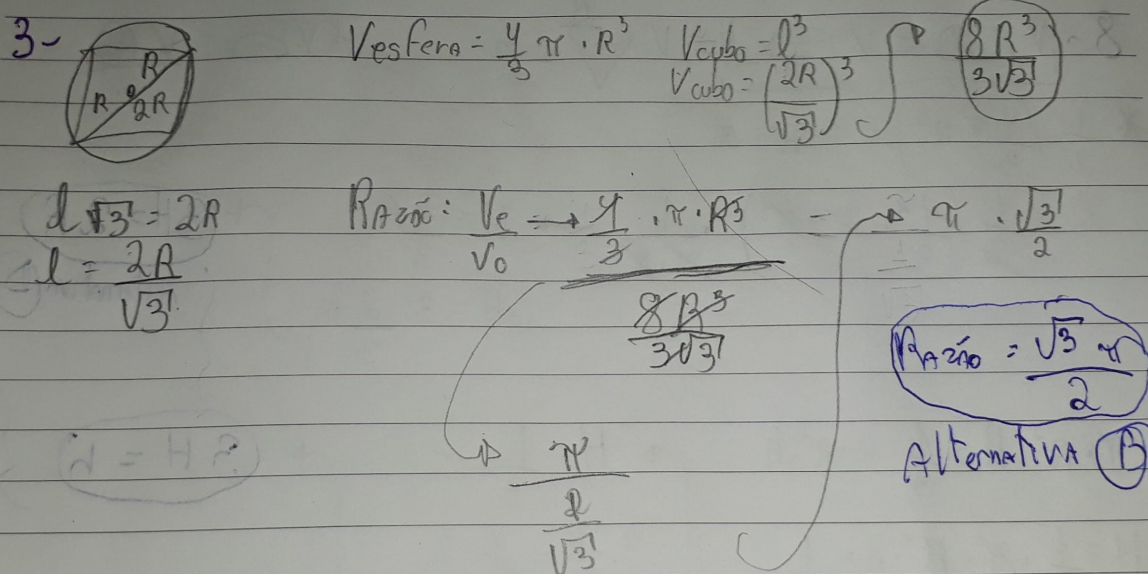 3-
R
R 2R
Vesfera = 4/3 π . R³
Vcubo = l³
Vcubo = (2R/√3)³
8R³/3√3
l√3 = 2R
l = 2R/√3
Razão: Ve/Vo → 4/3 . π . R³
8R³/3√3
π/(2/√3)
= π . √3/2
Razão = √3 π/2
Alternativa B